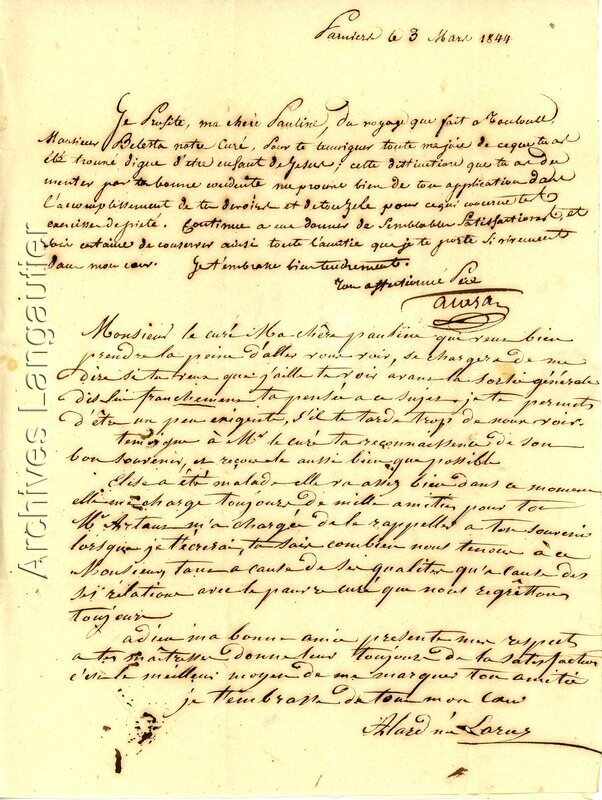 Pamiers le 3 Mars 1844
Je Profite, ma chère Pauline, du voyage que fait a Toulouse
Monsieur Belesta notre Curé, Pour te temoigner toute ma joie de ce que tu as
été trouvé digne d'être enfant de Jesus; cette distinction que tu as du
meriter par ta bonne conduite me prouve bien de ton application dans
l'accomplissement de tes devoirs et de ton zele pour ce qui concerne les
exercises de pieté. Continue a me donner de Semblables Satisfactions, et
sois certaine de conserver ainsi toute l'amitié que je te porte Si vivement
dans mon cœur. Je t'embrasse bien tendrement.
Ton affectionné Père
Monsieur le curé Ma chère pauline qui veut bien
prendre la peine d'aller vous voir, se chargera de me
dire si tu veux que j'aille te voir avant la sortie générale
dis lui franchement ta pensée a ce sujet, je te permets
d'être un peu exigente, s'il te tarde trop de nous voir.
temoigne à Mr le curé ta reconnaissance de son
bon souvenir, et reçois le aussi bien que possible
Elise a été malade elle va assez bien dans ce moment
elle me charge toujours de mille amities pour toi
Mr Artaus m'a chargée de le rappeller a ton souvenir
lorsque je t'ecrirai, tu sais combien nous tenons à ce
Monsieur, tant a cause de ses qualités qu'a cause des
ses rélations avec le pauvre curé que nous regrêttons
toujours
adieu ma bonne amie presente mes respects
a tes maîtresses donne leur toujours de la satisfaction
c'est le meilleur moyen de me marquer ton amitié
je t'embrasse de tout mon cœur
Alard née
Archives Langautier